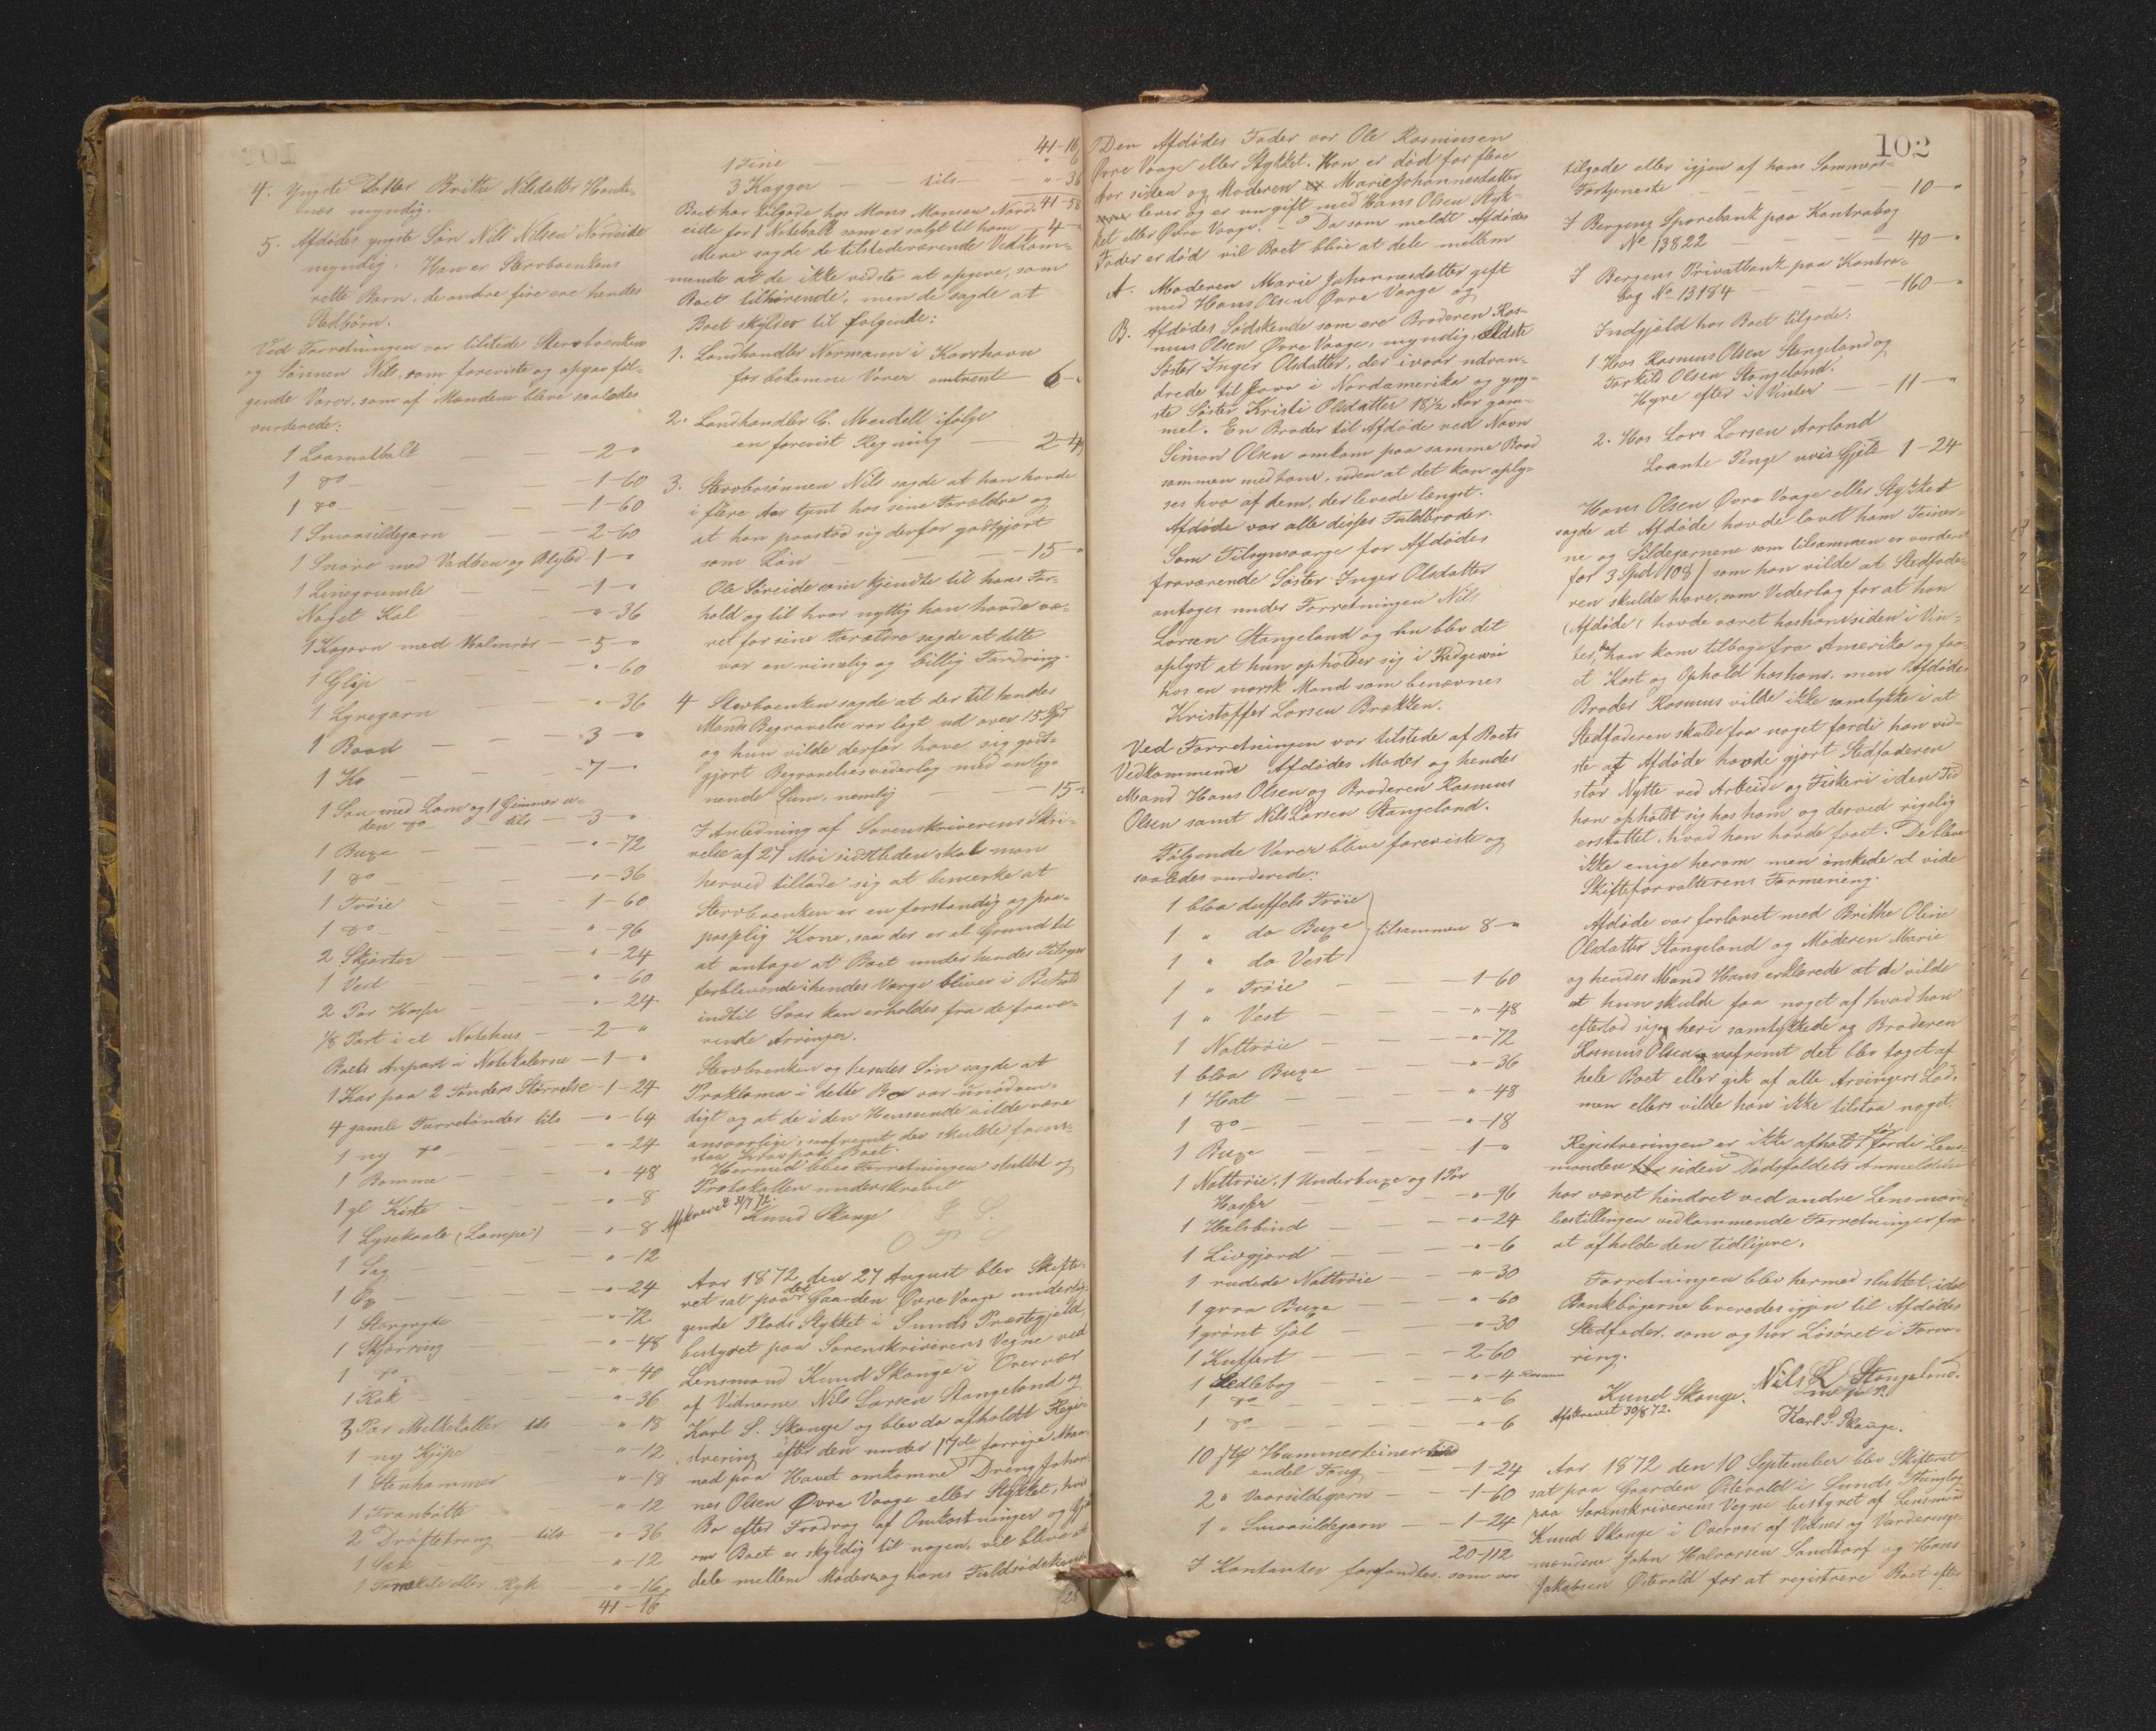 4. Yngste Datter Brithe Nilsdatter Hauke-
næs myndig.
5. Afdødes yngste Søn Nils Nilsen Nordeide
myndig. Han er Stervboenkens
rette Barn, de andre fire ere hendes
Stedbørn.
Ved Forretningen var tilstede Stervboenken
og Sønnen Nils, som foreviste og opgav föl-
gende Varer, som af Mændene bleve saaledes
vurderede:
1 Laamatbalk — 2 - "
1 do — 1-60
1 do — 1-60
1 Smaasildegarn — 2-60
1 Snøre med Vadben og Blylod - 1 - "
1 Linegrumle — 1 - "
Noget Kal — " - 36
1 Kogovn med Malmrør — 5 - "
1 Glip — " - 60
1 Lyregarn — " - 36
1 Baad — 3 - "
1 Ko — 7 - "
1 Sau med Lam og 1 Gimmer u-
den do — tils — 3 - "
1 Buxe — " - 72
1 do — " - 36
1 Trøie — 1-60
1 do — " - 96
2 Skjorter — " - 24
1 Vest — " - 60
2 Par Hoser — " - 24
1/8 Part i et Notehus — 2 - "
Boets Anpart i Notekalerne — 1 - "
1 Kar paa 2 Tønders Størrelse - 1 - 24
4 gamle Tørretønder tils — " - 64
1 ny do — " - 24
1 Bomme — " - 48
1 gl Kiste — " - 8
1 Lysekaale (Lampe) — " - 8
1 Sag — " - 12
1 Øx — " - 24
1 Stangryde — " - 72
1 Skjærring — " - 48
1 do — " - 40
1 Rok — " - 36
3 Par Melkekoller tils " - 18
1 ny Kjipe — " - 12
1 Stenhammer " - 18
1 Tranbøtte — " - 12
2 Drøftetroug — tils — " - 36
1 Sæk — " - 12
eller Ryk — " - 16
41 - 16
41-16
1 Tine — " - 6
3 Kagger — tils — " - 36
41-58
Boet har tilgode hos Mons Monsen Nord-
eide for 1 Notebalk som er solgt til ham — 4 - "
Mere sagde de tilstedeværende Vedkom-
mende at de ikke vidste at opgive, som
Boet tilhørende, men de sagde at
Boet skylder til følgende:
1. Landhandler Normann i Korshavn
for bekomne Varer omtrent — 6 - "
2. Landhandler C. Mendell ifølge
en forevist Regning — 2-
3. Stervbosønnen Nils sagde at han havde
i flere Aar tjent hos sine Forældre og
at han paastod sig derfor godtgjort
som Løn — 15 - "
Ole Søreide som kjendte til hans For-
hold og til hvor nyttig han havde væ-
ret for sine Forældre sagde at dette
var en rimelig og billig Fordring.
4 Stervboenken sagde at der til hendes
Mands Begravelse var lagt ud over 15 Spd
og hun vilde derfor have sig godt-
gjort Begravelsesvederlag med en lig-
nende Sum, nemlig — 15 - "
I Anledning af Sorenskriverens Skri-
velse af 27 Mai sidstleden skal man
herved tillade sig at bemærke at
Stervboenken er en forstandig og paa-
passelig Kone, saa der er al Grund til
at antage at Boet under hendes Tilsyn
forblevende i hendes Værge bliver i Behold
indtil Svar kan erholdes fra de fravæ-
rende Arvinger.
Stervboenken og hendes Søn sagde at
Proklama i dette Bo var unødven-
digt og at de i den Henseende vilde være
ansvarlige, saafremt der skulde frem-
staa Krav paa Boet.
Hermed blev Forretningen sluttet og
Protokollen underskrevet
Afskrevet 31/7 72.
Knud Skauge
Aar 1872 den 27 August blev Skifte-
ret sat paa det Gaarden Øvre Vaage underlig-
gende Plads Stykket i Sunds Præstegjeld,
bestyret paa Sorenskriverens Vegne ved
Lensmand Knud Skauge i Overvær
af Vidnerne Nils Larsen Stangeland og
Karl S. Skauge og blev da afholdt Regi-
strering efter den under 17de forrige Maa-
ned paa Havet omkomne Dreng Johan-
nes Olsen Øvre Vaage eller Stykket, hvis
Bo efter Fradrag af Omkostninger og Gjæld
om Boet er skyldig til nogen, vil blive at
dele mellem Moderen og hans Fuldsødskende
Den Afdødes Fader var Ole Rasmussen
Øvre Vaage eller Stykket. Han er død for flere
Aar siden og Moderen Marie Johannesdatter
lever og er nu gift med Hans Olsen Styk-
ket eller Øvre Vaage. - Da som meldt Afdødes
Fader er død vil Boet blive at dele mellem
A. Moderen Marie Johannesdatter gift
med Hans Olsen Øvre Vaage og
B. Afdødes Sødskende som ere Broderen Ras-
mus Olsen Øvre Vaage, myndig, Ældste
Søster Inger Olsdatter, der ivaar udvan-
drede til Iowa i Nordamerika og yng-
ste Søster Kristi Olsdatter 18½ Aar gam-
mel. En Broder til Afdøde ved Navn
Simon Olsen omkom paa samme Baad
sammen med ham, uden at det kan oply-
ses hvo af dem, der levede længst.
Afdøde var alle disses Fuldbroder.
Som Tilsynsværge for Afdødes
fraværende Søster Inger Olsdatter
antoges under Forretningen Nils
Larsen Stangeland og nu blev det
oplyst at hun opholder sig i Ridgewæ
hos en norsk Mand som benævnes
Kristoffer Larsen Brækken.
Ved Forretningen var tilstede af Boets
Vedkommende Afdødes Moder og hendes
Mand Hans Olsen og Broderen Rasmus
Olsen samt Nils Larsen Stangeland.
Følgende Varer bleve foreviste og
saaledes vurderede:
1 blaa duffels Trøie
1 " do Buxe } tilsammen 8 - "
1 " do Vest
1 " Trøie — 1-60
1 " Vest — " - 48
1 Nattrøie — " - 72
1 blaa Buxe — " - 36
1 Hat — " - 48
1 do — " - 18
1 Buxe — 1 - "
1 Nattrøie, 1 Underbuxe og 1 Par
Hoser — " - 96
1 Halsbind — " - 24
1 Livgjord — " - 6
1 rudede Nattrøie — " - 30
1 graa Buxe — " - 60
1 grønt Sjal — " - 30
1 Kuffert — 2-60
1 Sedlebog — " - 4
1 do — " - 6
1 do — " - 6
10 Hummerteiner
endel Toug — 1-24
2 " Vaarsildegarn — 1-60
1 " Smaasildegarn — 1-24
20-112
I Kontanter forfandtes som var
102
tilgode eller igjen af hans Sommer-
Fortjeneste — 10 - "
I Bergens Sparebank paa Kontrabog
No 13822 — 40 - "
I Bergens Privatbank paa Kontra-
bog No 13184 — 160 - "
Indgjæld hos Boet tilgode:
1. Hos Rasmus Olsen Stangeland og
Torkild Olsen Stangeland.
Hyre efter i Vinter — 11 - "
2. Hos Lars Larsen Aarland
Laante Penge uvis Gjæld 1-24
Hans Olsen Øvre Vaage eller Stykket
sagde at Afdøde havde lovet ham Teiner-
ne og Sildegarnene som tilsammen er vurderet
for 3 Spd 108 / som han vilde at Stedfade-
ren skulde have, som Vederlag for at han
(Afdøde) havde været hos ham siden i Vin-
ter, da han kom tilbage fra Amerika og faa-
et Kost og Ophold hos ham. men Afdødes
Broder Rasmus vilde ikke samtykke i at
Stedfaderen skulde faa noget fordi han vid-
ste at Afdøde havde gjort Stedfaderen
stor Nytte ved Arbeide og Fiskeri i den Tid
han opholdt sig hos ham og derved rigelig
erstattet, hvad han havde faaet. De bleve
ikke enige herom men ønskede at vide
Skifteforvalterens Formening.
Afdøde var forlovet med Brithe Oline
Olsdatter Stangeland og Moderen Marie
og hendes Mand Hans erklærede at de vilde
at hun skulde faa noget af hvad han
efterlod sig, heri samtykkede og Broderen
Rasmus Olsen saafremt det blev taget af
hele Boet eller gik af alle Arvingers Lod,
men ellers vilde han ikke tilstaa noget.
Registreringen er ikke afholdt før fordi Lens-
manden siden Dødsfaldets Anmeldelse
har været hindret ved andre Lensmands-
bestillingen vedkommende Forretninger fra
at afholde den tidligere.
Forretningen blev hermed sluttet, idet
Bankbøgerne leveredes igjen til Afdødes
Stedfader, som og har Løsøret i Forva-
ring.
Knud Skauge. Nils L. Stangeland.
m. p. P.
Afskrevet 30/8 72.
Karl S. Skauge.
Aar 1872 den 10 September blev Skifteret
sat paa Gaarden Østevold i Sunds Thinglag
paa Sorenskriverens Vegne bestyret af Lensmand
Knud Skauge i Overvær af Vidner og Vurderings-
mændene John Halvorsen Sandtorf og Hans
Jakobsen Østevold for at registrere Boet efter